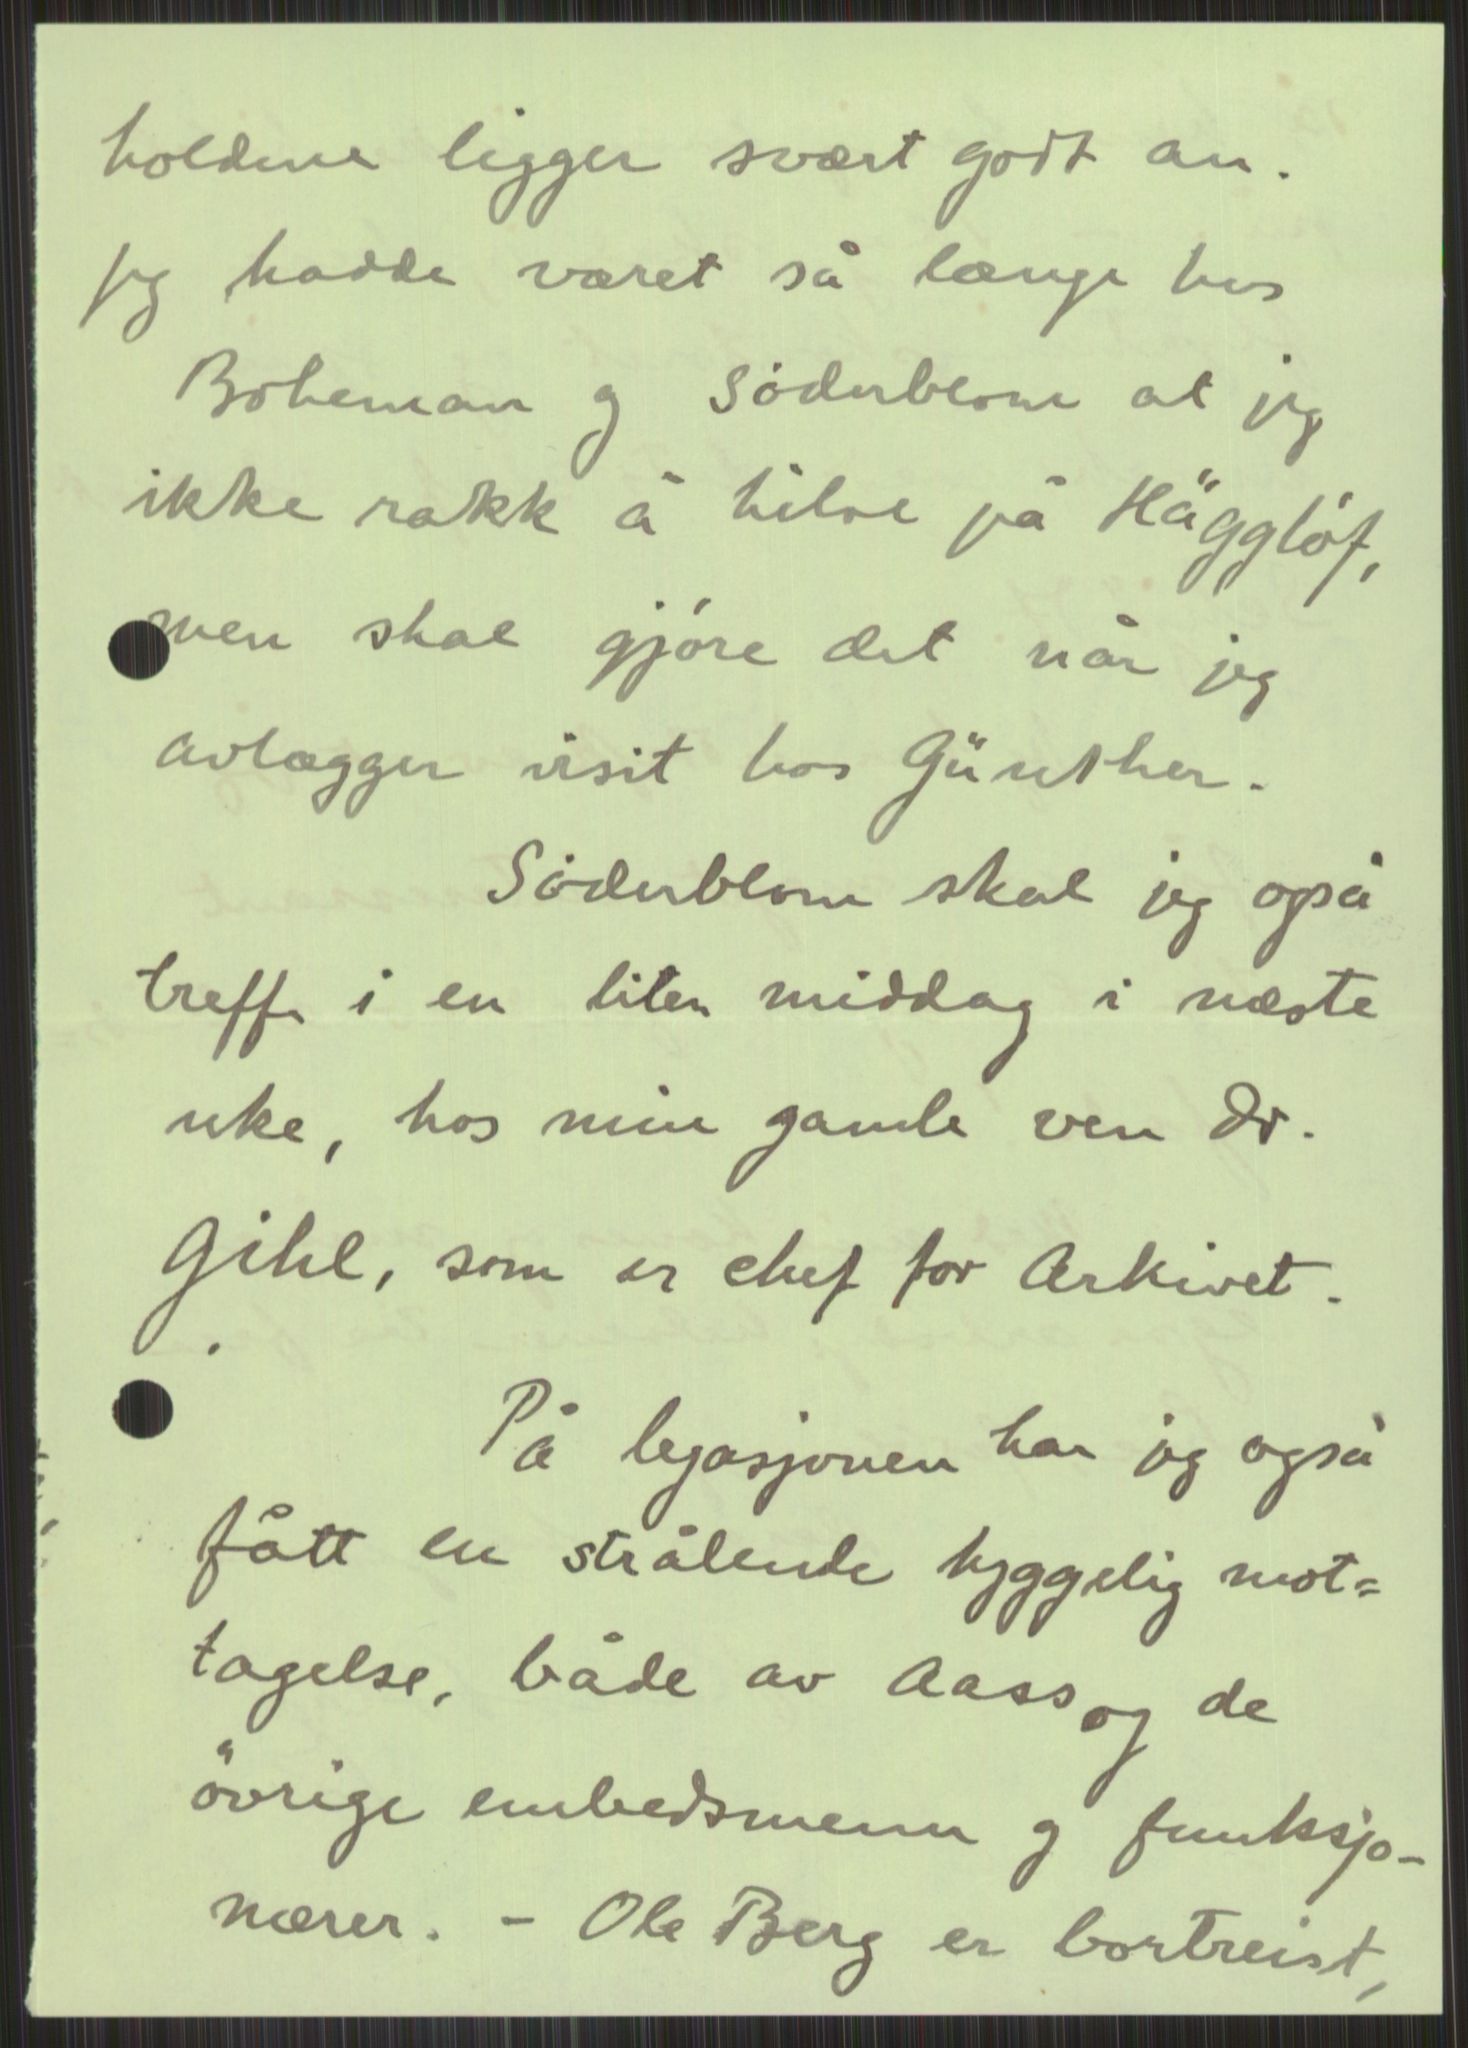 holdene ligger svært godt an.
Jeg hadde været så længe hos
Boheman og Söderblom at jeg
ikke rakk å hilse på Hägglöf,
men skal gjöre det når jeg
avlægger visit hos Günther.
Söderblom skal jeg også
treffe i en liten middag i næste
uke, hos min gamle ven Dr.
Gihl, som er chef for Arkivet.
På legasjonen har jeg også
fått en strålende hyggelig mot=
tagelse, både av Aass og de
övrige embedsmenn og funksjo-
nærer. - Ole Berg er bortreist,